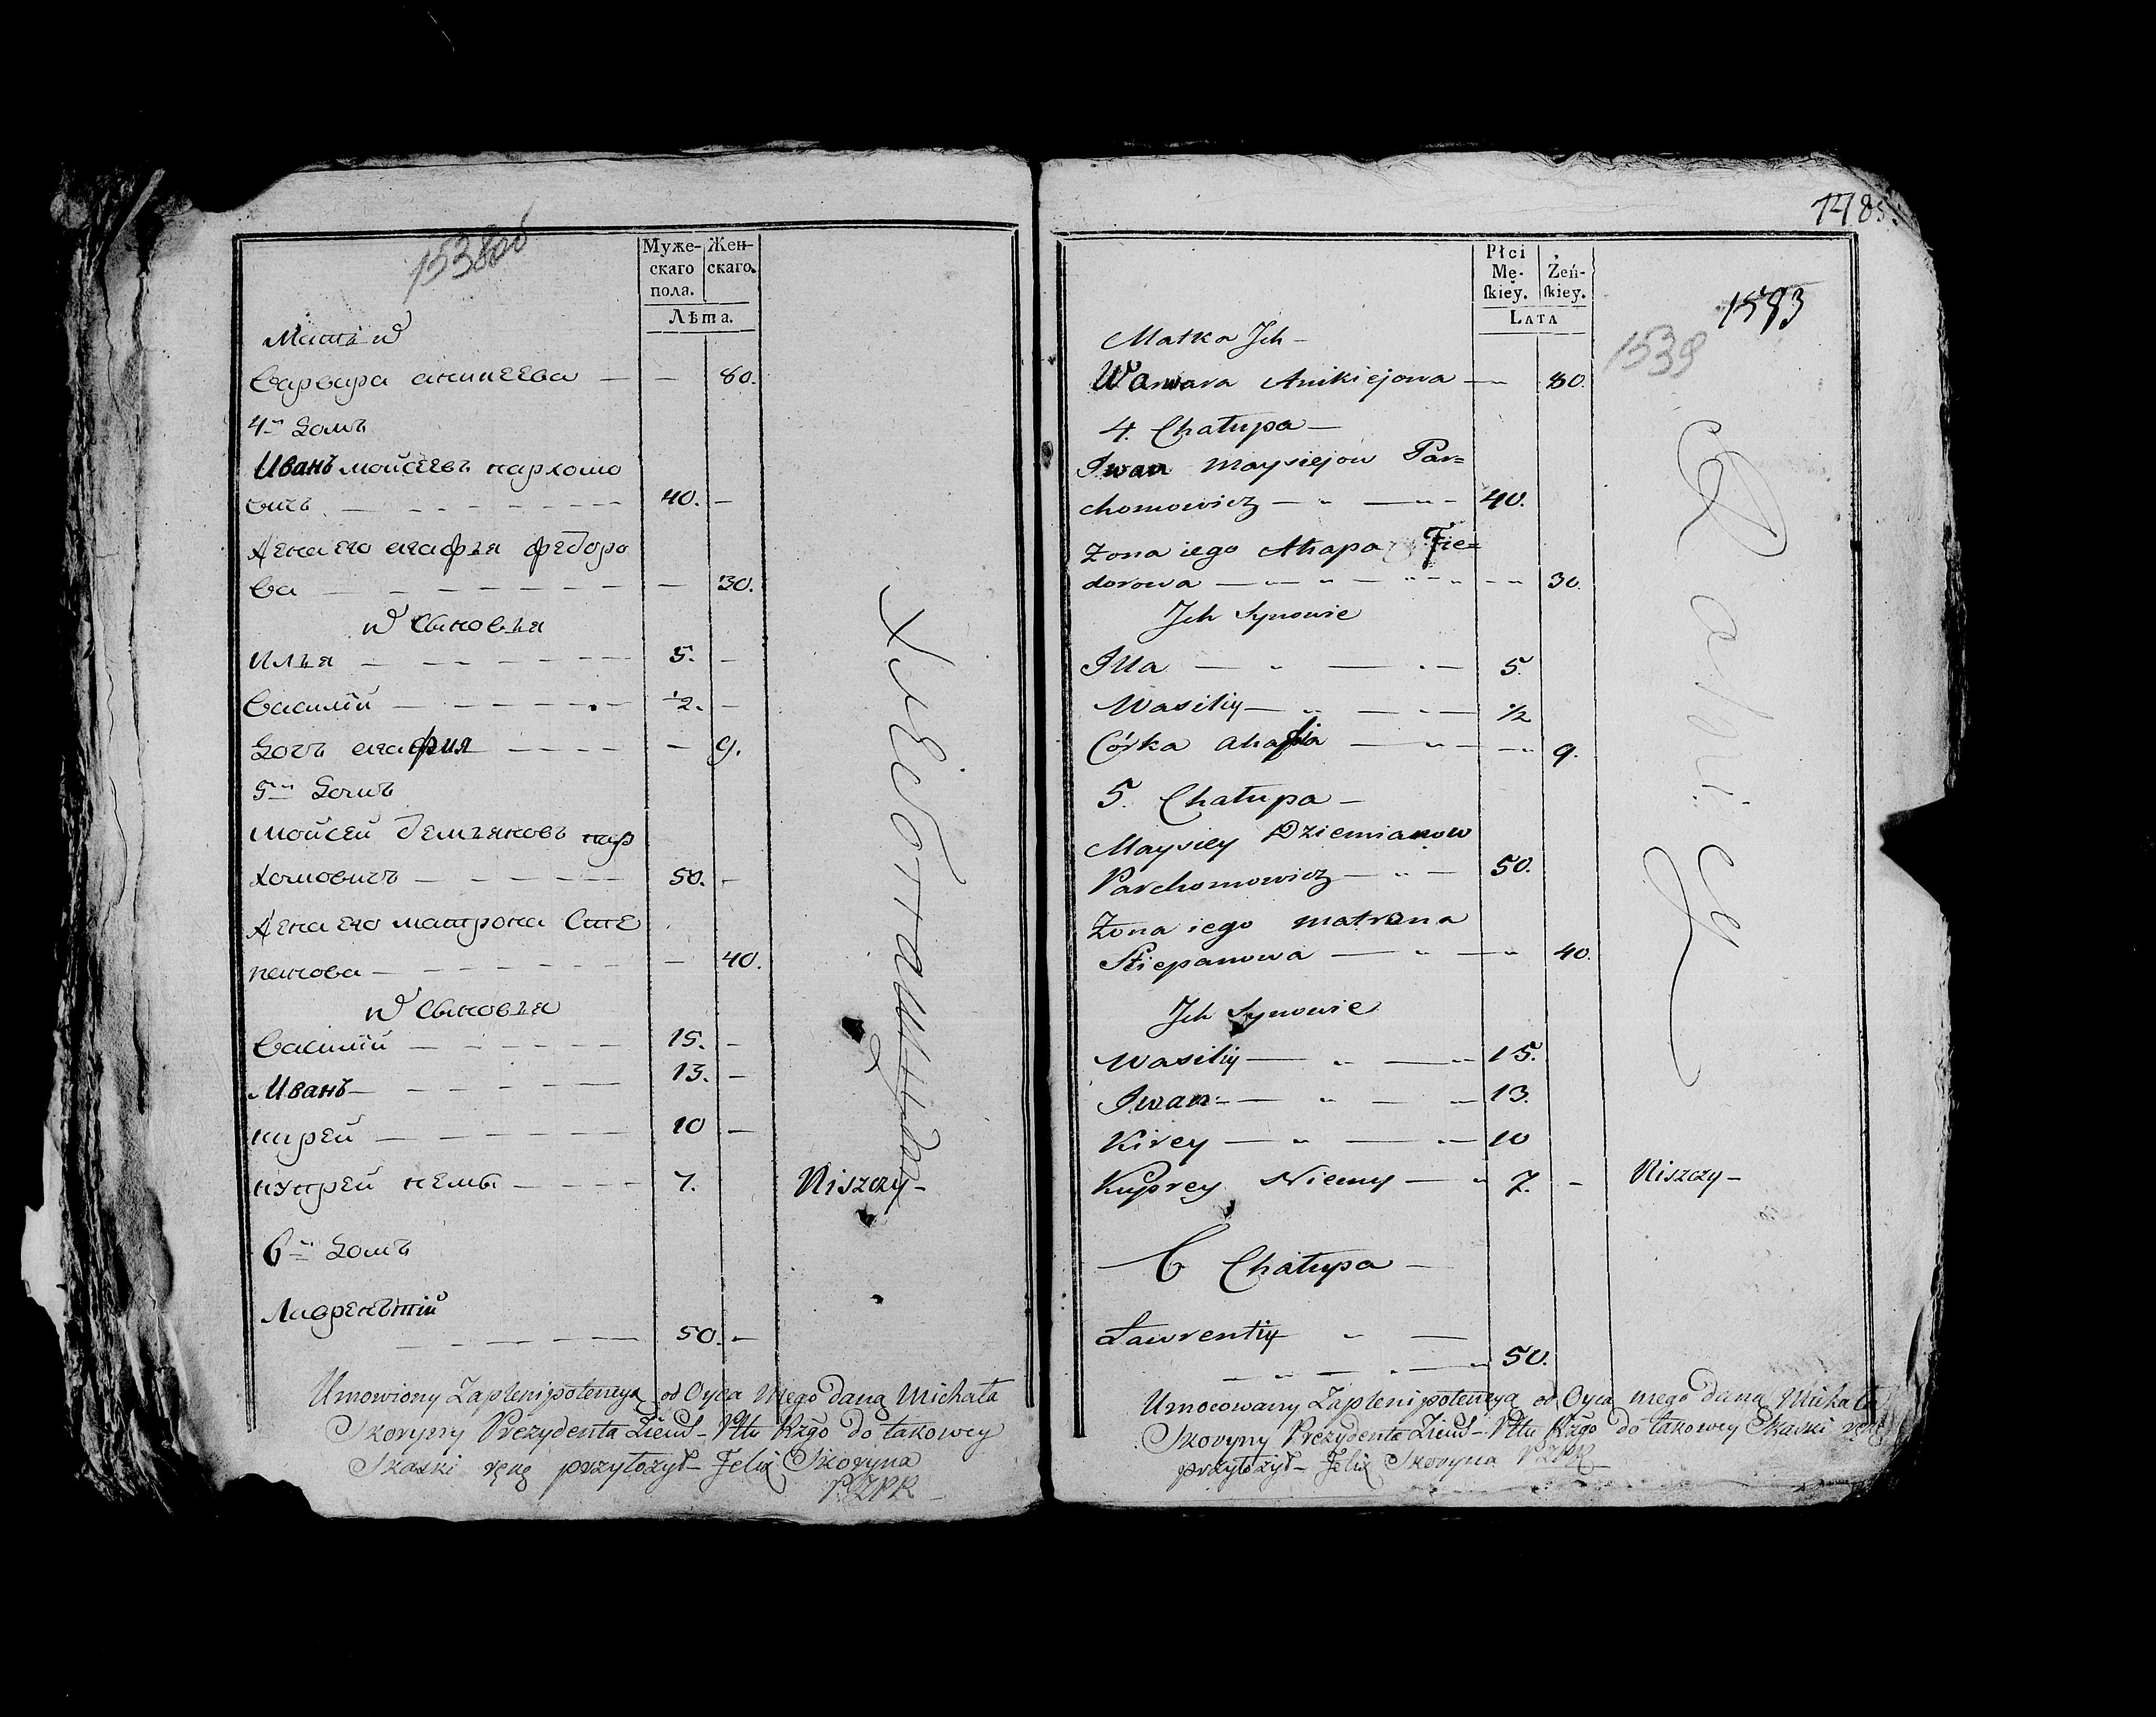 1538об
Муже-
скаго
пола.
Жен-
скаго.
Лѣта.
Мать их
Варвара аникеева — — 80.
4й Домъ
Иванъ мойсеевъ пархомо
вичъ — 40. —
Жена его агафья федоро
ва — — 30.
их Сыновья
Илья — 5. —
Василий — ½. —
Дочь агафия — — 9.
5й Домъ
Мойсей демьяновъ пар
хомовичъ — 50. —
Жена его матрона Сте
панова — — 40.
их Сыновья
Василий — 15. —
Иванъ — 13. —
кирей — 10 —
купрей немы — 7. Niszczy —
6й Домъ
Лаврентий
— 50. —
Umowiony Zaplenipotencyą od Oyca Mego daną Michała
Skoryny Prezydenta Ziems – Pttu Rzgo do takowey
Skaski rękę przyłożył – Felix Skoryna
P. Z P R –
1485.
1593
1539
Płci
Mę-
ſkiey.
Żeń-
ſkiey.
LATA
Matka Jch —
Warwara Anikiejowa — 80.
4. Chałupa —
Iwan Maysiejow Par=
chomowicz — 40.
Żona iego Ahapa Fie=
dorowa — 30.
Jch Synowie
Illa — 5.
Wasiliy — ½
Córka ahafia — 9.
5. Chałupa —
Maysiey Dziemianow
Parchomowicz — 50.
Żona iego matrona
Stiepanowa — 40.
Jch Synowie
Wasiliy — 15.
Iwan — 13.
Kirey — 10
Kuprey Niemy — 7. — Niszczy —
6 Chałupa —
Ławrentiy —
— 50.
Umocowany Zaplenipotencyą od Oyca mego daną Michała
Skoryny Prezydenta Ziems – Pttu Rzgo do takowey Skaski rękę
przyłożył – Felix Skoryna P Z P R –